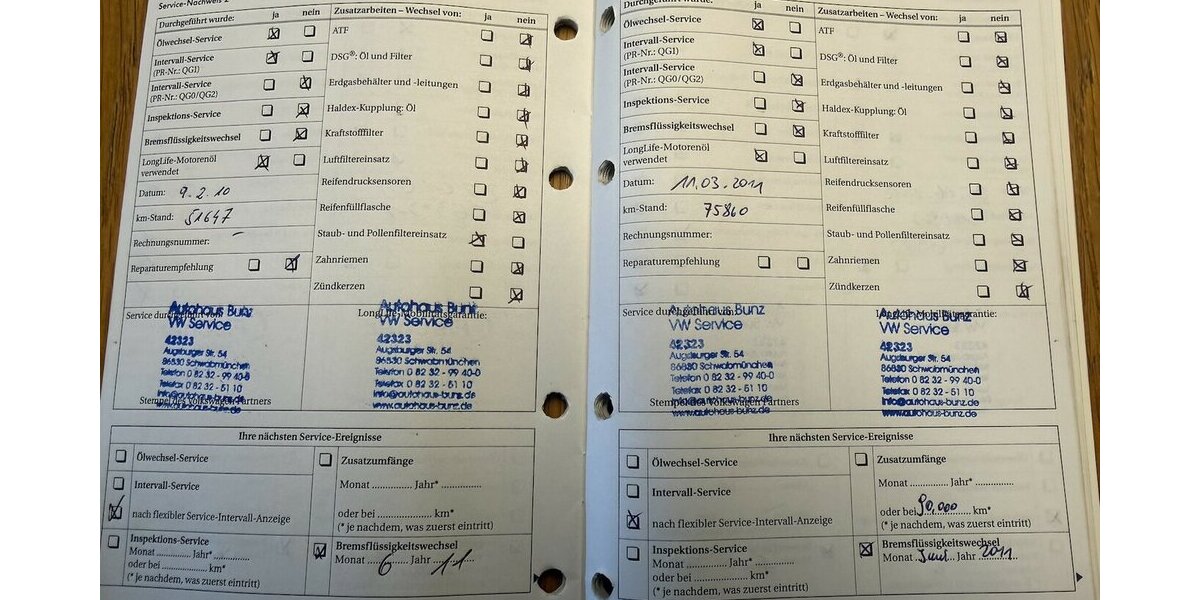 Service-Nachweis 2
Durchgeführt wurde: ja nein
Ölwechsel-Service
Intervall-Service
(PR-Nr.: QG1)
Intervall-Service
(PR-Nr.: QG0/QG2)
Inspektions-Service
Bremsflüssigkeitswechsel
LongLife-Motorenöl
verwendet
Datum: 9.2.10
km-Stand: 51647
Rechnungsnummer: –
Reparaturempfehlung
Zusatzarbeiten – Wechsel von: ja nein
ATF
DSG®: Öl und Filter
Erdgasbehälter und -leitungen
Haldex-Kupplung: Öl
Kraftstofffilter
Luftfiltereinsatz
Reifendrucksensoren
Reifenfüllflasche
Staub- und Pollenfiltereinsatz
Zahnriemen
Zündkerzen
Service durchgeführt von:
Autohaus Bunz
VW Service
42323
Augsburger Str. 54
86830 Schwabmünchen
Telefon 0 82 32 - 99 40-0
Telefax 0 82 32 - 51 10
info@autohaus-bunz.de
www.autohaus-bunz.de
LongLife-Mobilitätsgarantie:
Autohaus Bunz
VW Service
42323
Augsburger Str. 54
86830 Schwabmünchen
Telefon 0 82 32 - 99 40-0
Telefax 0 82 32 - 51 10
info@autohaus-bunz.de
www.autohaus-bunz.de
Stempel des Volkswagen Partners
Ihre nächsten Service-Ereignisse
Ölwechsel-Service
Intervall-Service
nach flexibler Service-Intervall-Anzeige
Inspektions-Service
Monat ............ Jahr* ............
oder bei ............ km*
(* je nachdem, was zuerst eintritt)
Zusatzumfänge
Monat ............ Jahr* ............
oder bei ............ km*
(* je nachdem, was zuerst eintritt)
Bremsflüssigkeitswechsel
Monat 6 Jahr 11
Durchgeführt wurde: ja nein
Ölwechsel-Service
Intervall-Service
(PR-Nr.: QG1)
Intervall-Service
(PR-Nr.: QG0/QG2)
Inspektions-Service
Bremsflüssigkeitswechsel
LongLife-Motorenöl
verwendet
Datum: 11.03.2011
km-Stand: 75860
Rechnungsnummer:
Reparaturempfehlung
Zusatzarbeiten – Wechsel von: ja nein
ATF
DSG®: Öl und Filter
Erdgasbehälter und -leitungen
Haldex-Kupplung: Öl
Kraftstofffilter
Luftfiltereinsatz
Reifendrucksensoren
Reifenfüllflasche
Staub- und Pollenfiltereinsatz
Zahnriemen
Zündkerzen
Service durchgeführt von:
Autohaus Bunz
VW Service
42323
Augsburger Str. 54
86830 Schwabmünchen
Telefon 0 82 32 - 99 40-0
Telefax 0 82 32 - 51 10
info@autohaus-bunz.de
www.autohaus-bunz.de
LongLife-Mobilitätsgarantie:
Autohaus Bunz
VW Service
42323
Augsburger Str. 54
86830 Schwabmünchen
Telefon 0 82 32 - 99 40-0
Telefax 0 82 32 - 51 10
info@autohaus-bunz.de
www.autohaus-bunz.de
Stempel des Volkswagen Partners
Ihre nächsten Service-Ereignisse
Ölwechsel-Service
Intervall-Service
nach flexibler Service-Intervall-Anzeige
Inspektions-Service
Monat ............ Jahr* ............
oder bei ............ km*
(* je nachdem, was zuerst eintritt)
Zusatzumfänge
Monat ............ Jahr* ............
oder bei 90,000 km*
(* je nachdem, was zuerst eintritt)
Bremsflüssigkeitswechsel
Monat Juni Jahr 2011